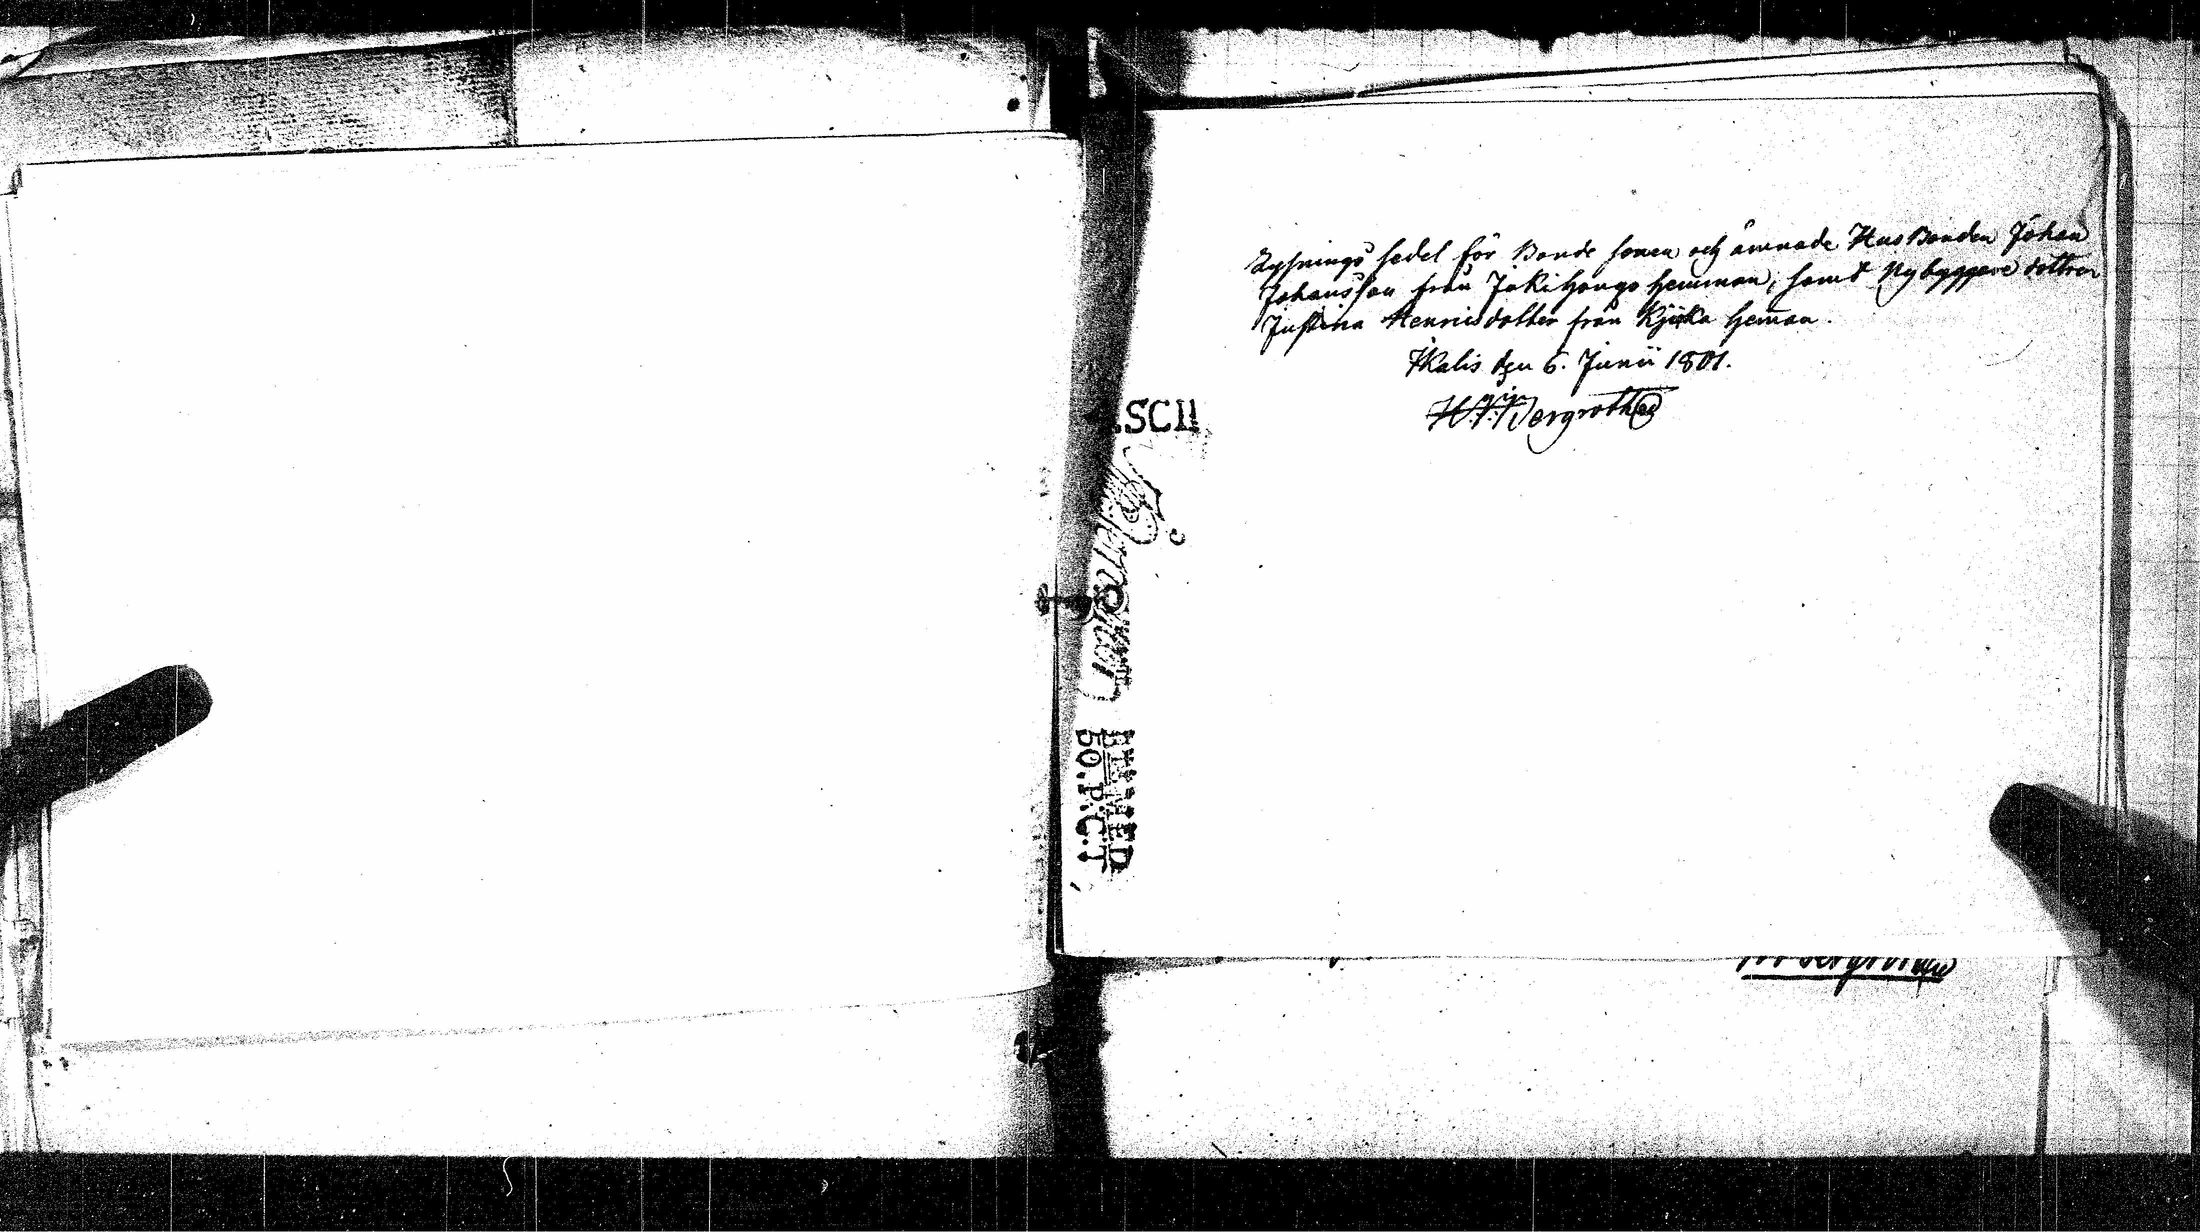 Lysnings sedel för Bonde sonen och ämnade Husbonden Johan
Johansson från Jakihongo hemman, samt Nybyggare dottren
Justina Henricsdotter från Kjikka heman.
Ikalis den 6. Junii 1801.
Bergroth
SCII
BEVILLNED
50.P:C.T